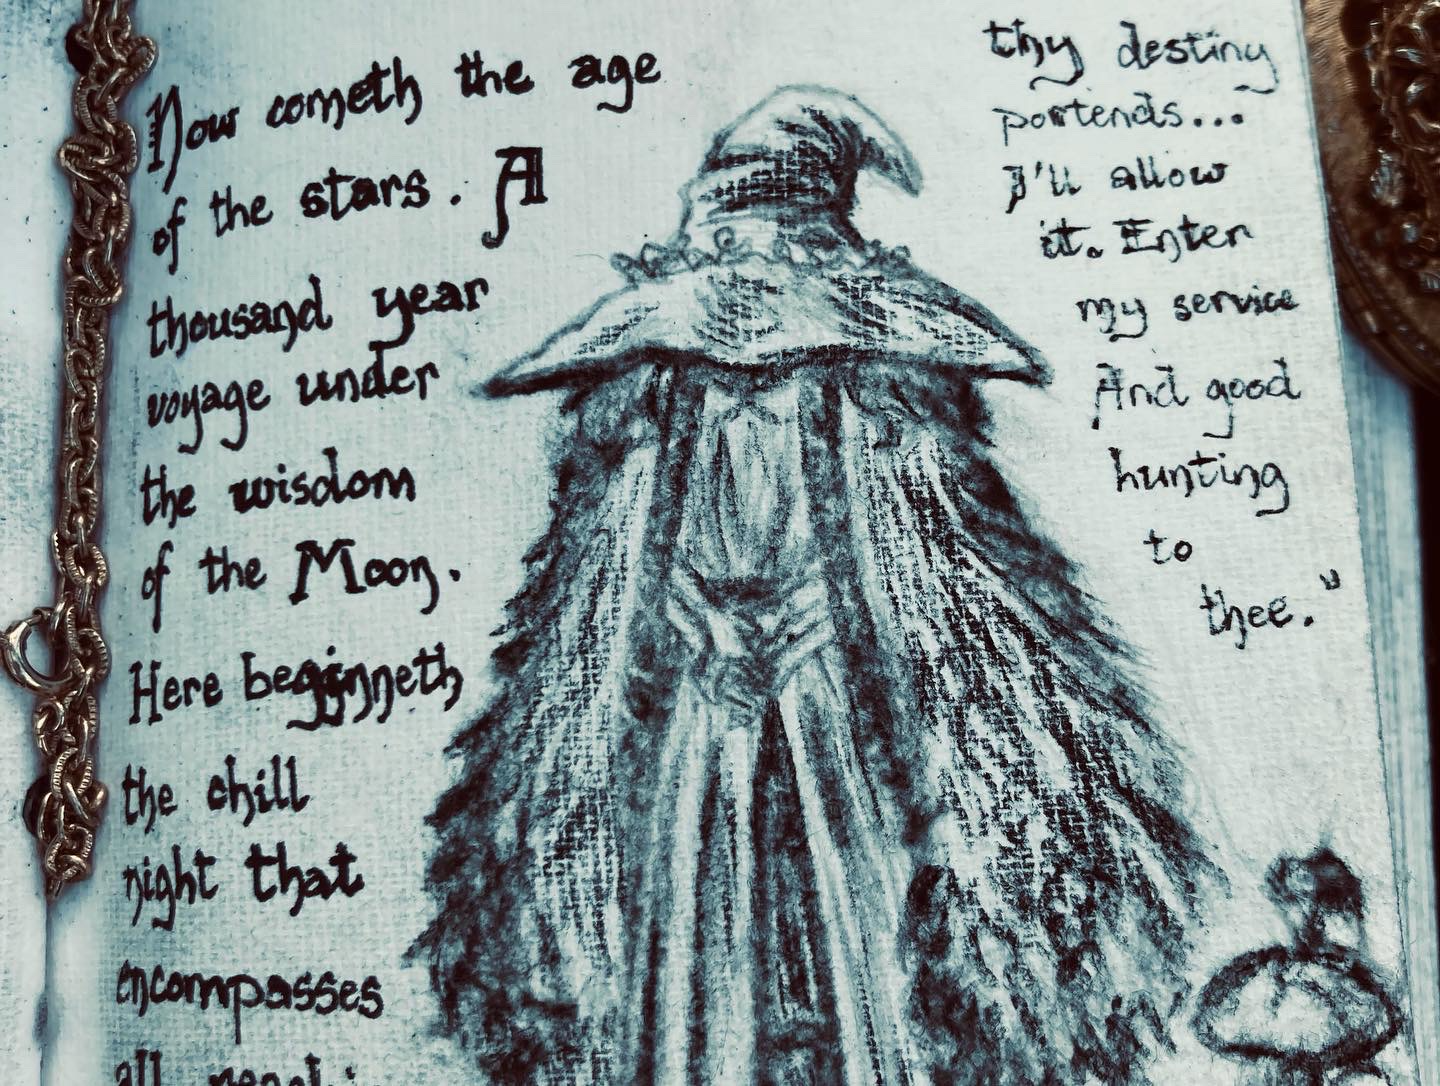 Now cometh the age
of the stars. A
thousand year
voyage under
the wisdom
of the Moon.
Here beginneth
the chill
night that
encompasses
all
thy destiny
portends...
I'll allow
it. Enter
my service
And good
hunting
to
thee."